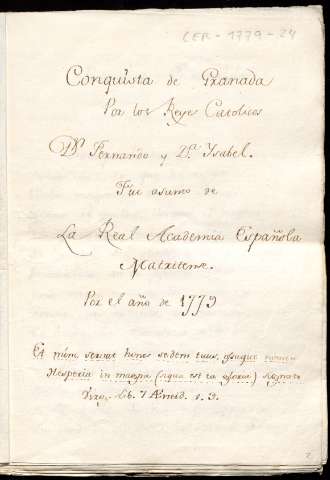 CER-1779-24
Conquista de Granada
Por los Reyes Catolicos
Dn Fernando y D.a Isabel.
Fue asumo de
La Real Academia Española
Matritense.
Por el año de 1779
Et nunc servat honos sedem tuus, ossaque nomen
Hesperia in magna (siqua est ea gloria) signat
Virg. Lib. 7 Æneid. v. 3.